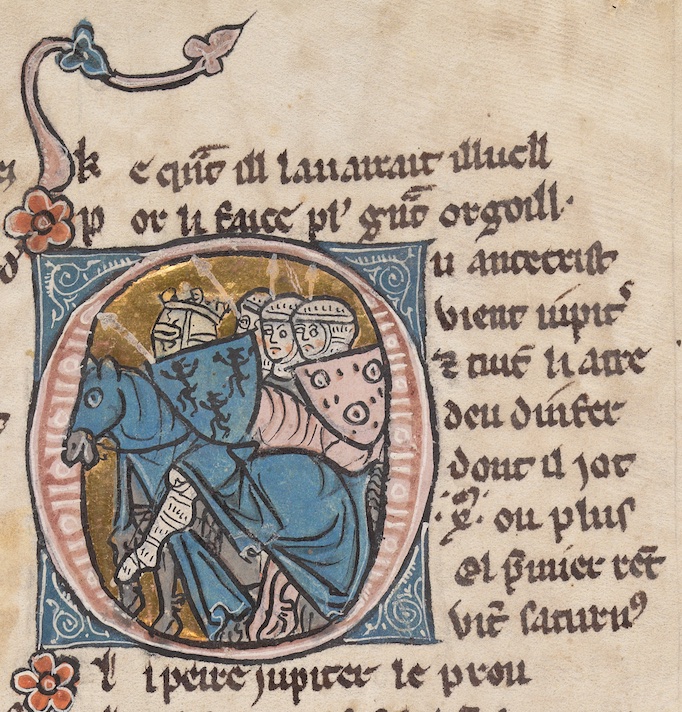 k e qnt ill lauairait illuell
p or li faire pl' gnt orgoill·
u antecrist
vient iupit
⁊ tuit li atre
deu dinfer
dont il iot
·x· ou plus
El pmier ret
vit saturn
l i peire jupiter le prou